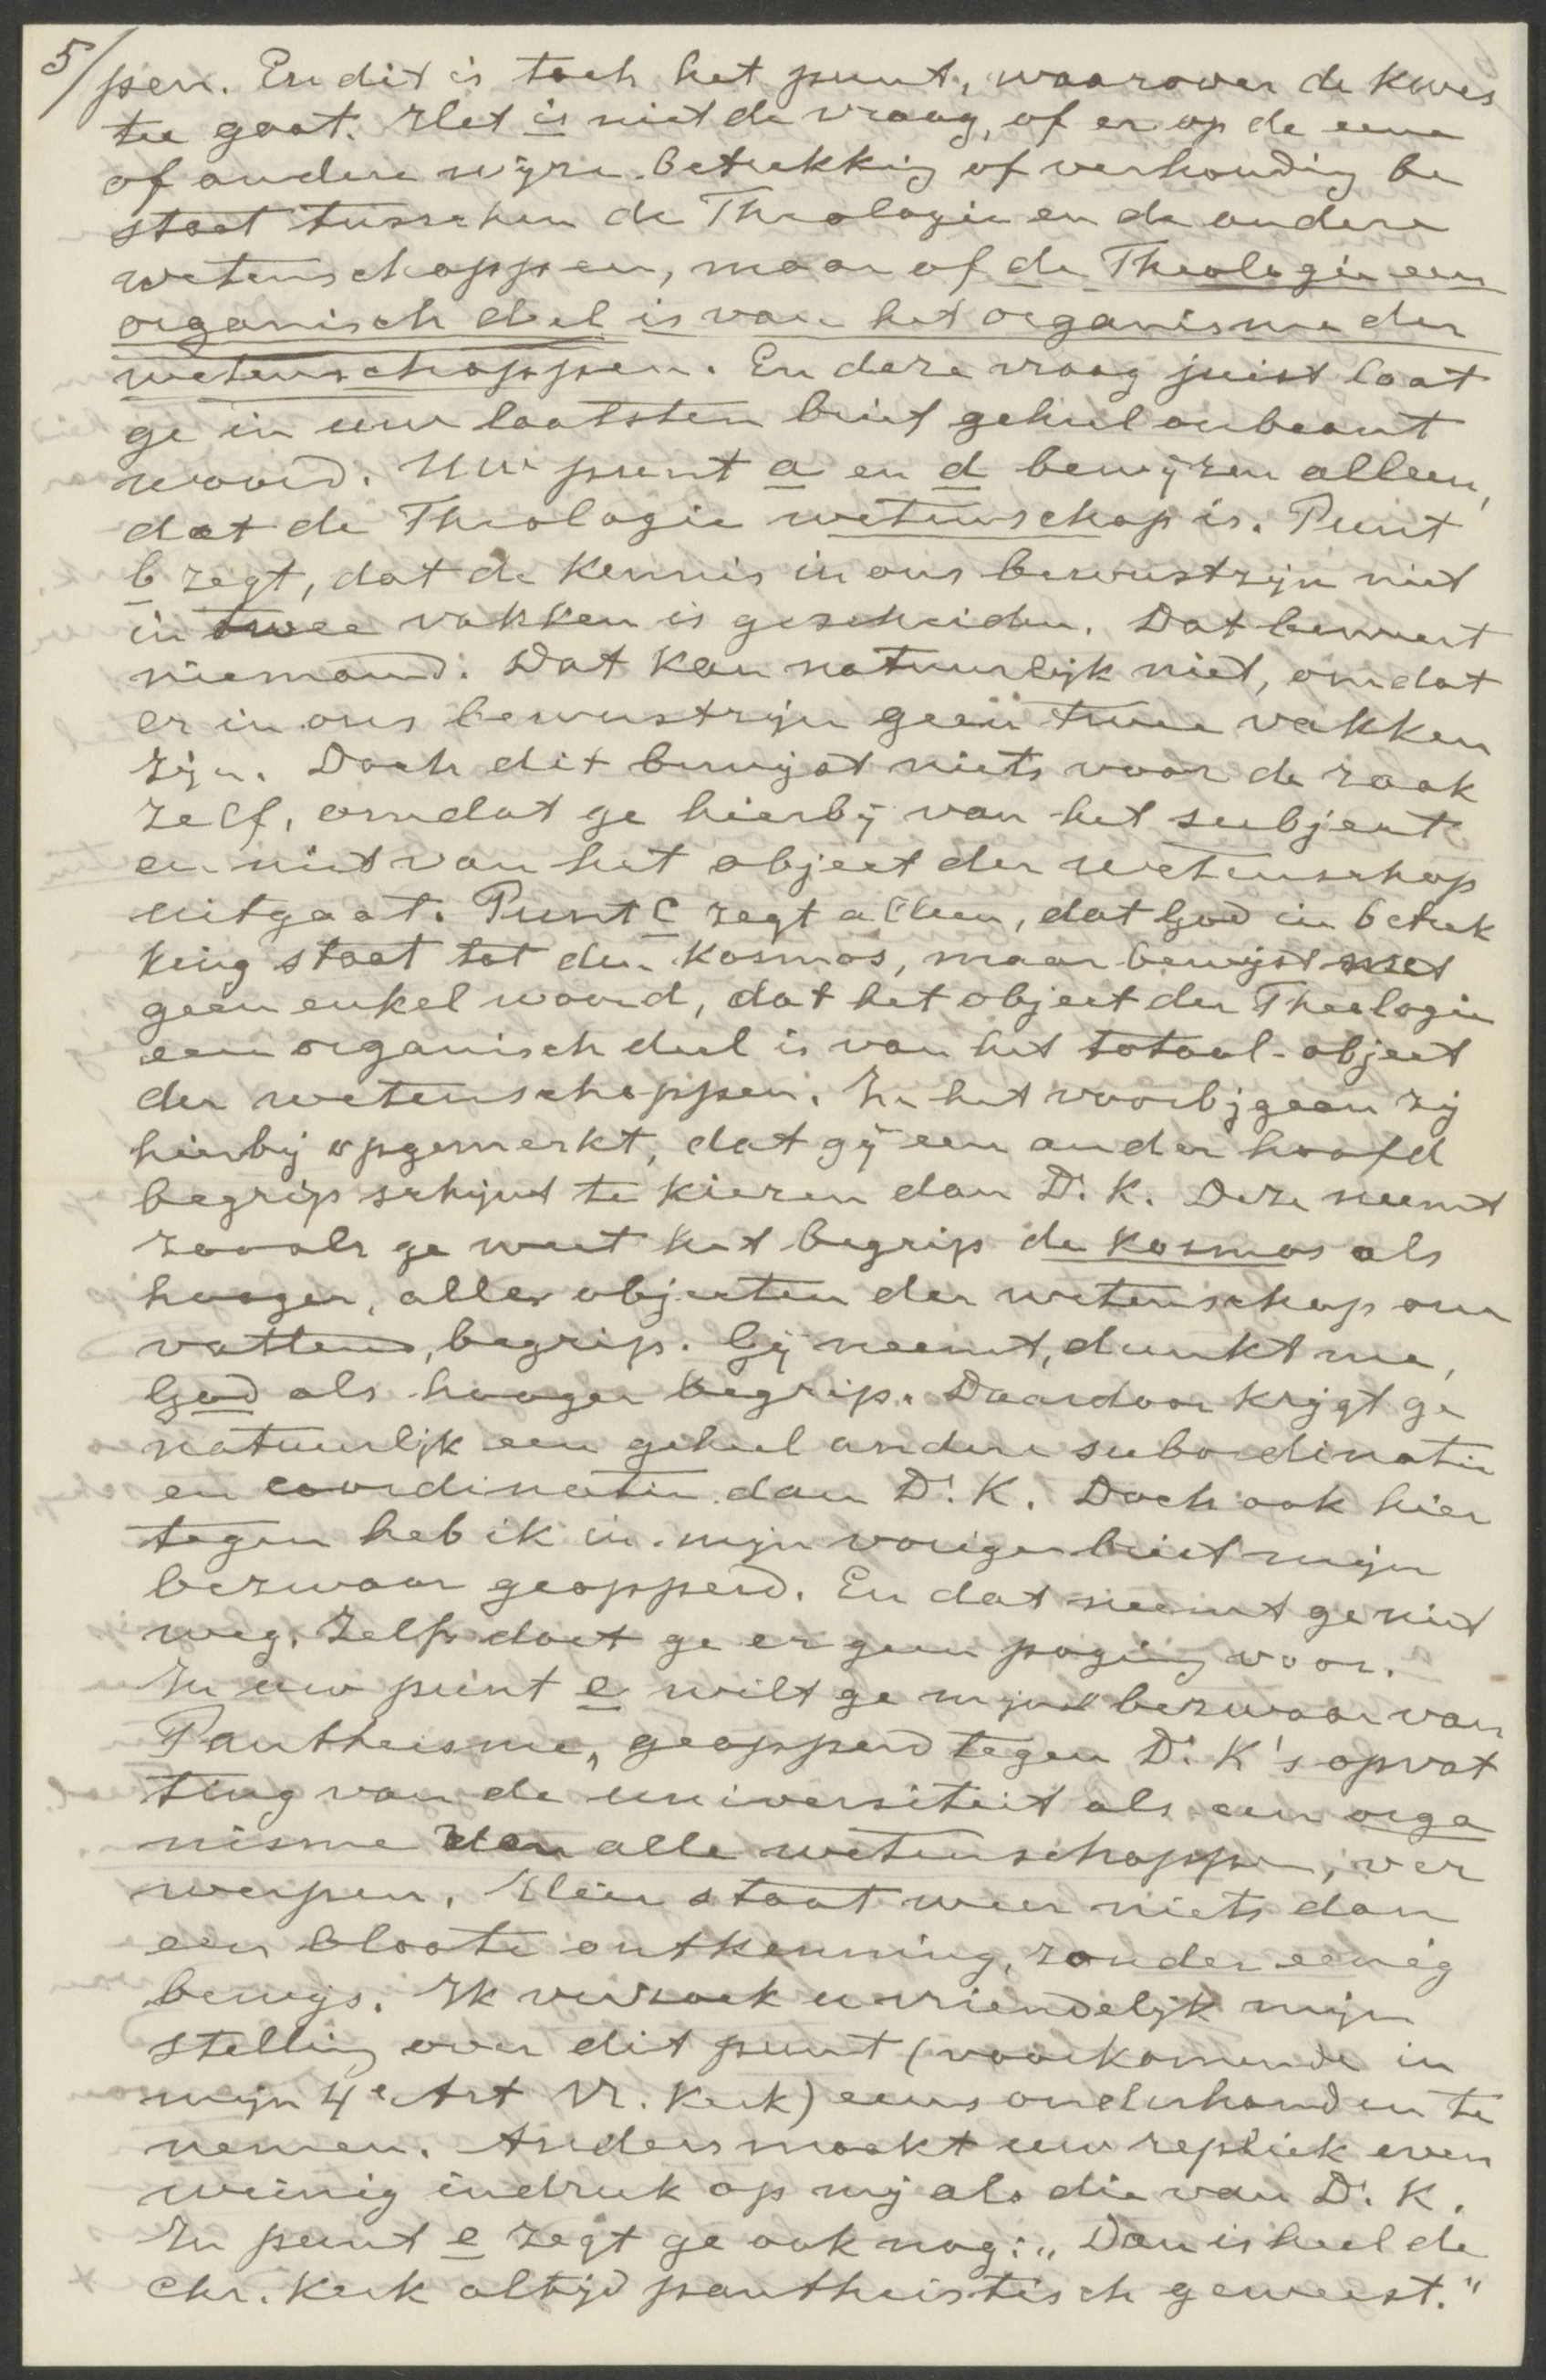 5/ pen. En dit is toch het punt, waarover de kwes
tie gaat. Het is niet de vraag, of er op de eene
of andere wijze betrekking of verhouding be
staat tusschen de Theologie en de andere
wetenschappen, maar of de Theologie een
organisch deel is van het organisme der
wetenschappen. En deze vraag juist laat
ge in uw laatsten brief geheel onbeant
woord. Uw punt a en d bewijzen alleen,
dat de Theologie wetenschap is. Punt
b zegt, dat de kennis in ons bewustzijn niet
in twee vakken is gescheiden. Dat beweert
niemand. Dat kan natuurlijk niet, omdat
er in ons bewustzijn geen twee vakken
zijn. Doch dit bewijst niets voor de zaak
zelf, omdat ge hierbij van het subject
en niet van het object der wetenschap
uitgaat. Punt c zegt alleen, dat God in betrek
king staat tot den kosmos, maar bewijst met
geen enkel woord, dat het object der Theologie
een organisch deel is van het totaal-object
der wetenschappen. In het voorbijgaan zij
hierbij opgemerkt, dat gij een ander hoofd
begrip schijnt te kiezen dan Dr. K. Deze neemt
zooals ge weet het begrip de kosmos als
hooger, alle objecten der wetenschap om
vattend, begrip. Gij neemt, dunkt me,
God als hooger begrip. Daardoor krijgt ge
natuurlijk een geheel andere subordinatie
en coordinatie dan Dr. K. Doch ook hier
tegen heb ik in mijn voriger brief mijn
bezwaar geopperd. En dat neemt ge niet
weg. Zelfs doet ge er geen poging voor.
In uw punt e wilt ge mijn "bezwaar van
Pantheisme", geopperd tegen Dr. K's opvat
ting van de universiteit als een orga
nisme der alle wetenschappen, ver
werpen. Hier staat weer niets dan
een bloote ontkenning, zonder eenig
bewijs. Ik verzoek u vriendelijk mijn
stelling over dit punt (voorkomende in
mijn 4e Art Vr. Kerk) eens onderhanden te
nemen. Anders maakt uw repliek even
weinig indruk op mij als die van Dr. K.
In punt e zegt ge ook nog: „Dan is heel de
Chr. Kerk altijd pantheistisch geweest."